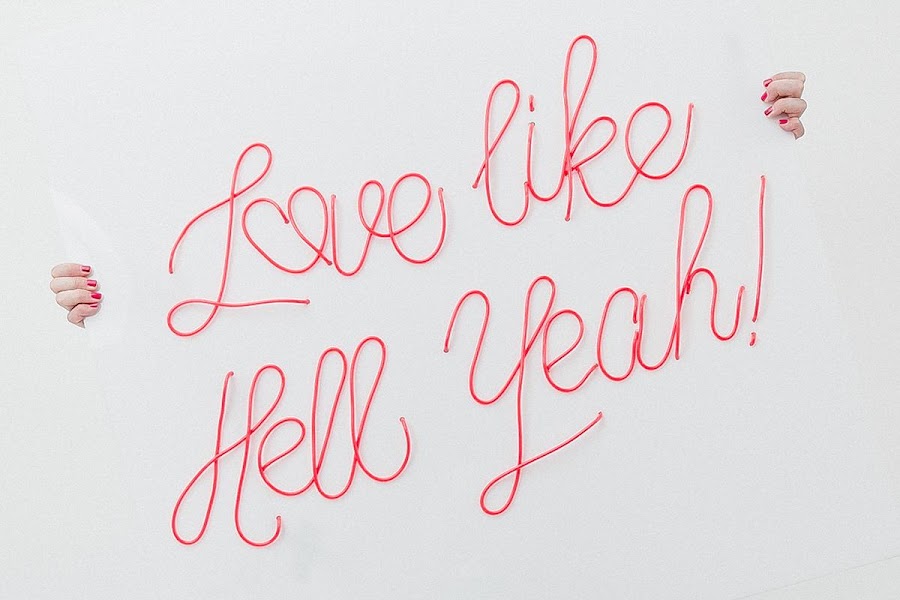 Love like
Hell Yeah!